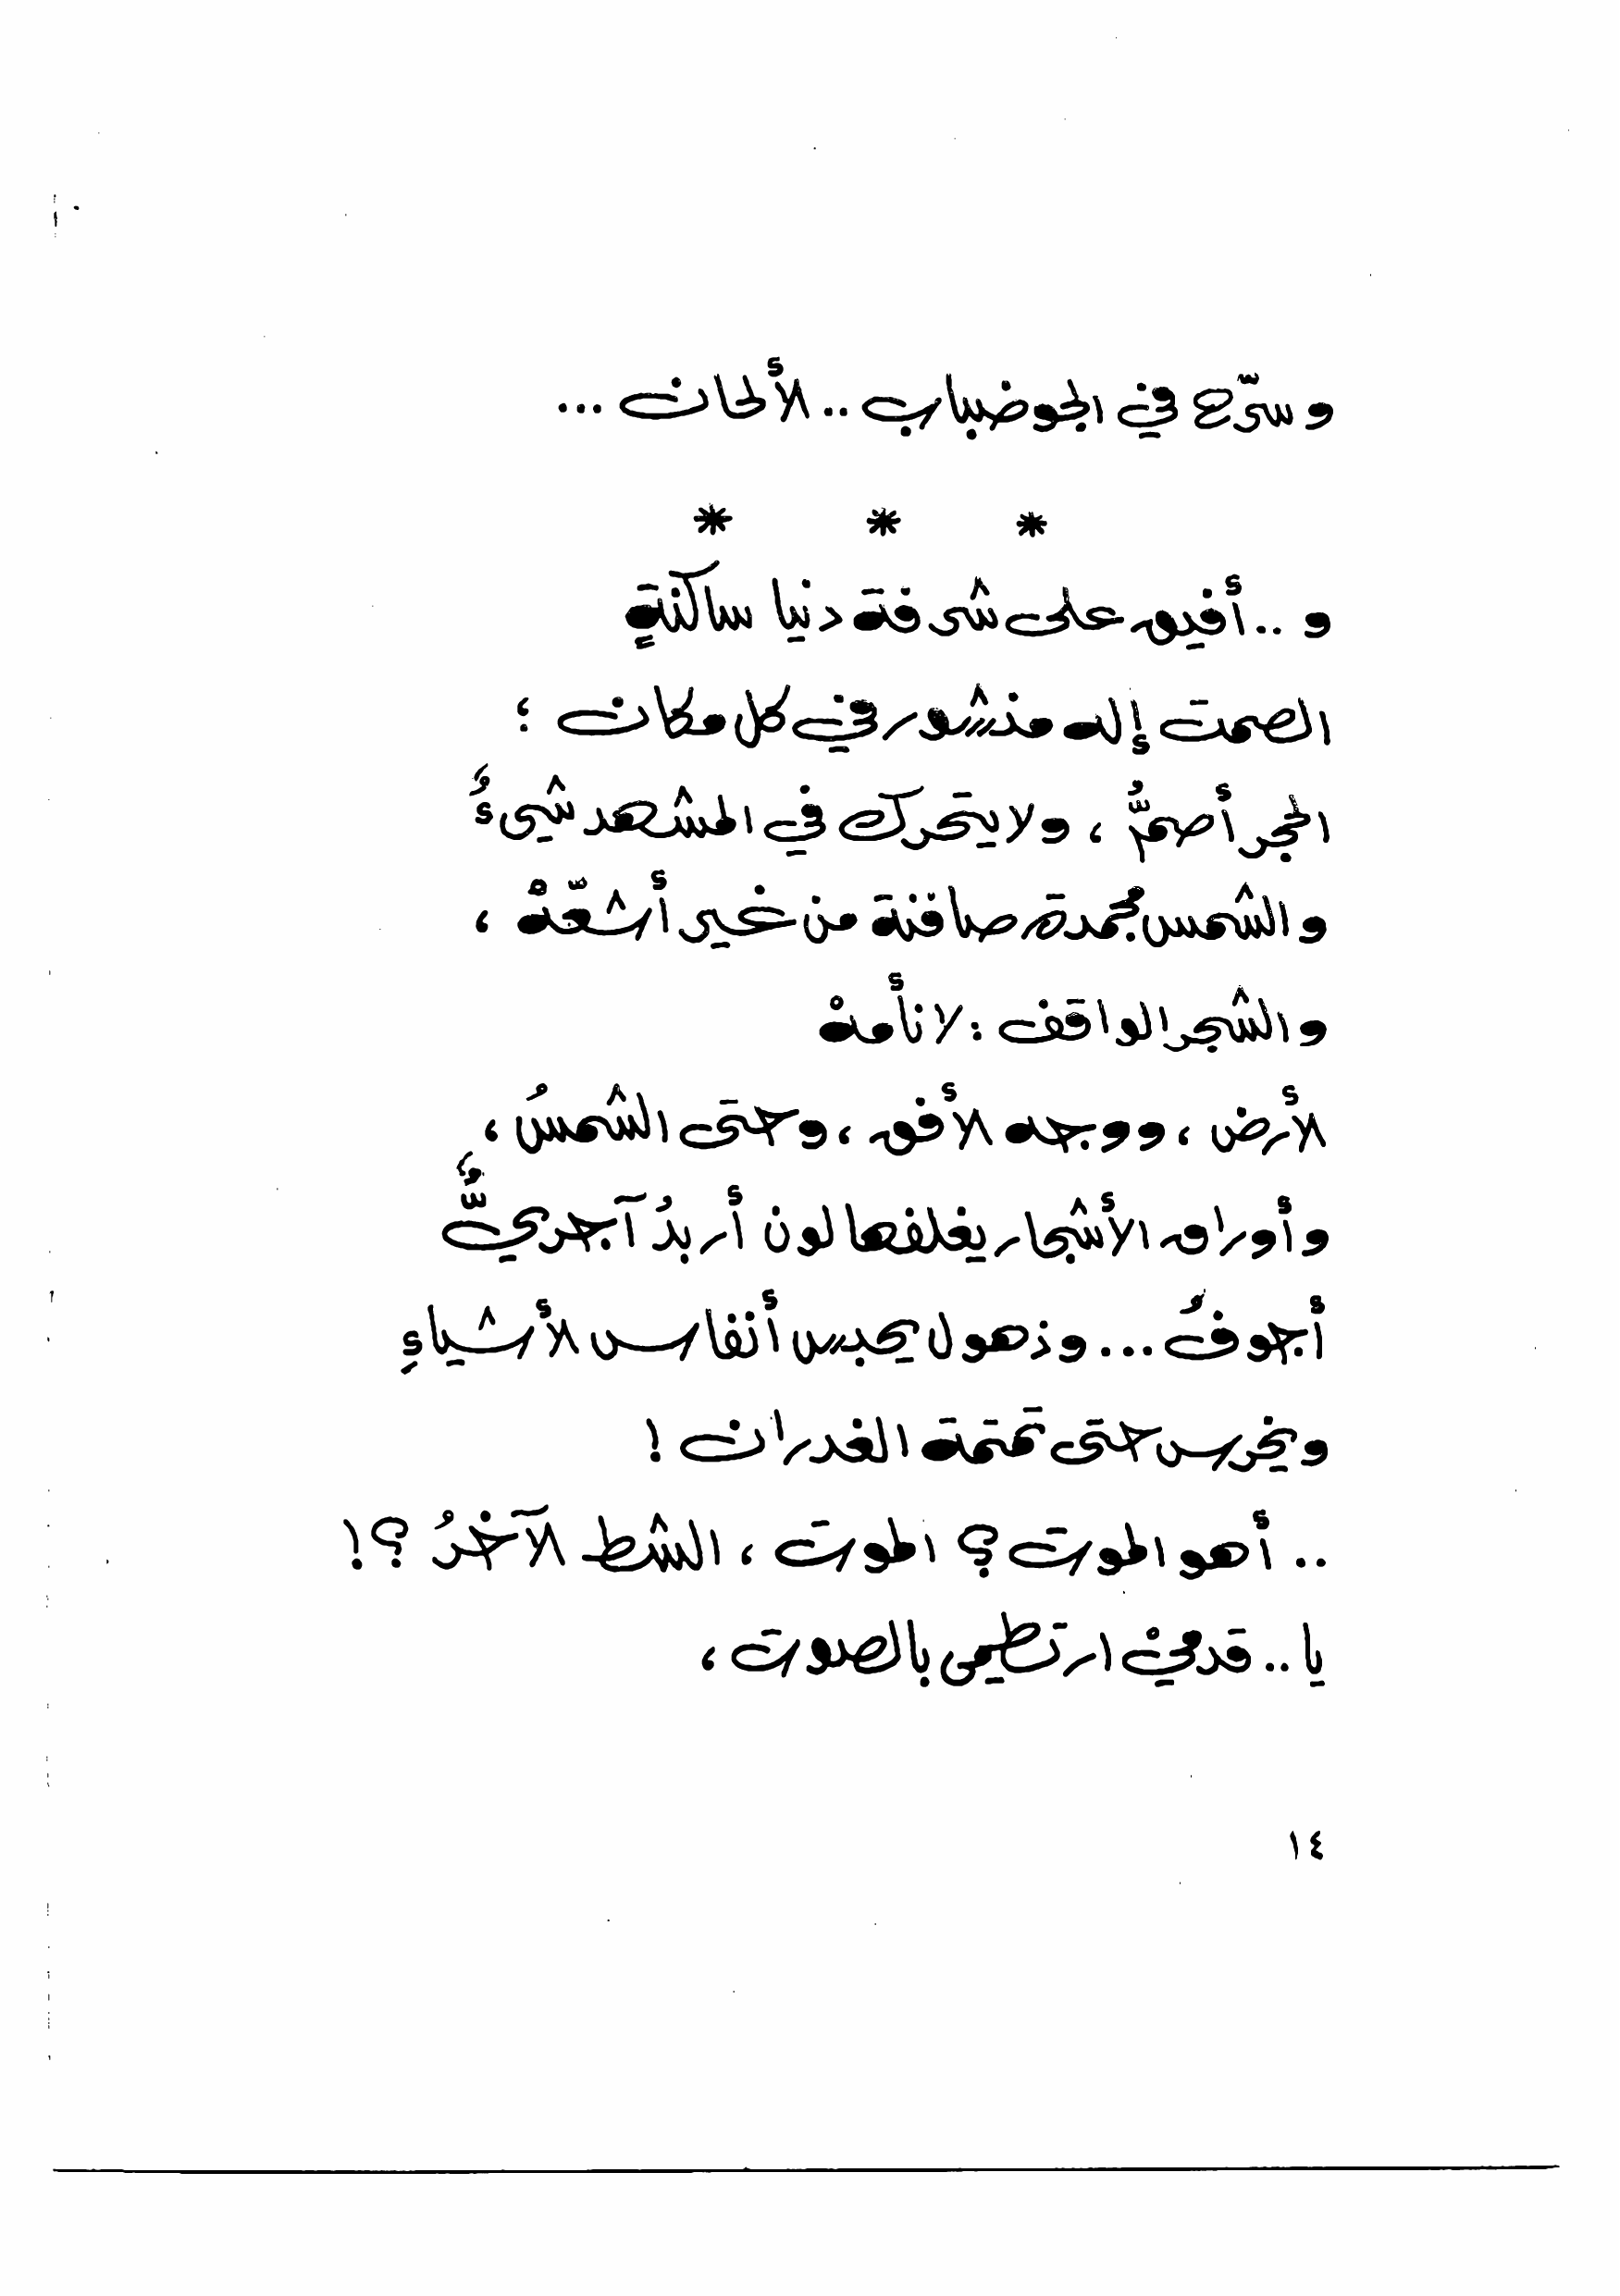 وسرّح في الجو ضباب .. الألحان ...
* * *
و .. أفيق على شرفة دنيا ساكنةٍ
الصمت إله منشور في كل مكان ؛
الحجر أصمُّ ، ولا يتحرك في المشهد شيءٌ
والشمس مجمدة، صافنة من غير أشعّهْ ،
والشجر الواقف : لا نأمهْ
الأرض ، ووجه الأفق ، وحتى الشمسُ ،
وأوراق الأشجار يغلفها لون أربدُ آجريٌّ
أجوفُ ... وذهول يحبس أنفاس الأشياءِ
ويخرس حتى تمتمة الغدران !
.. أهو الموت ؟ الموت ، الشط الآخرُ ؟!
يا .. قدميْ ارتطمي بالصوت ،
١٤